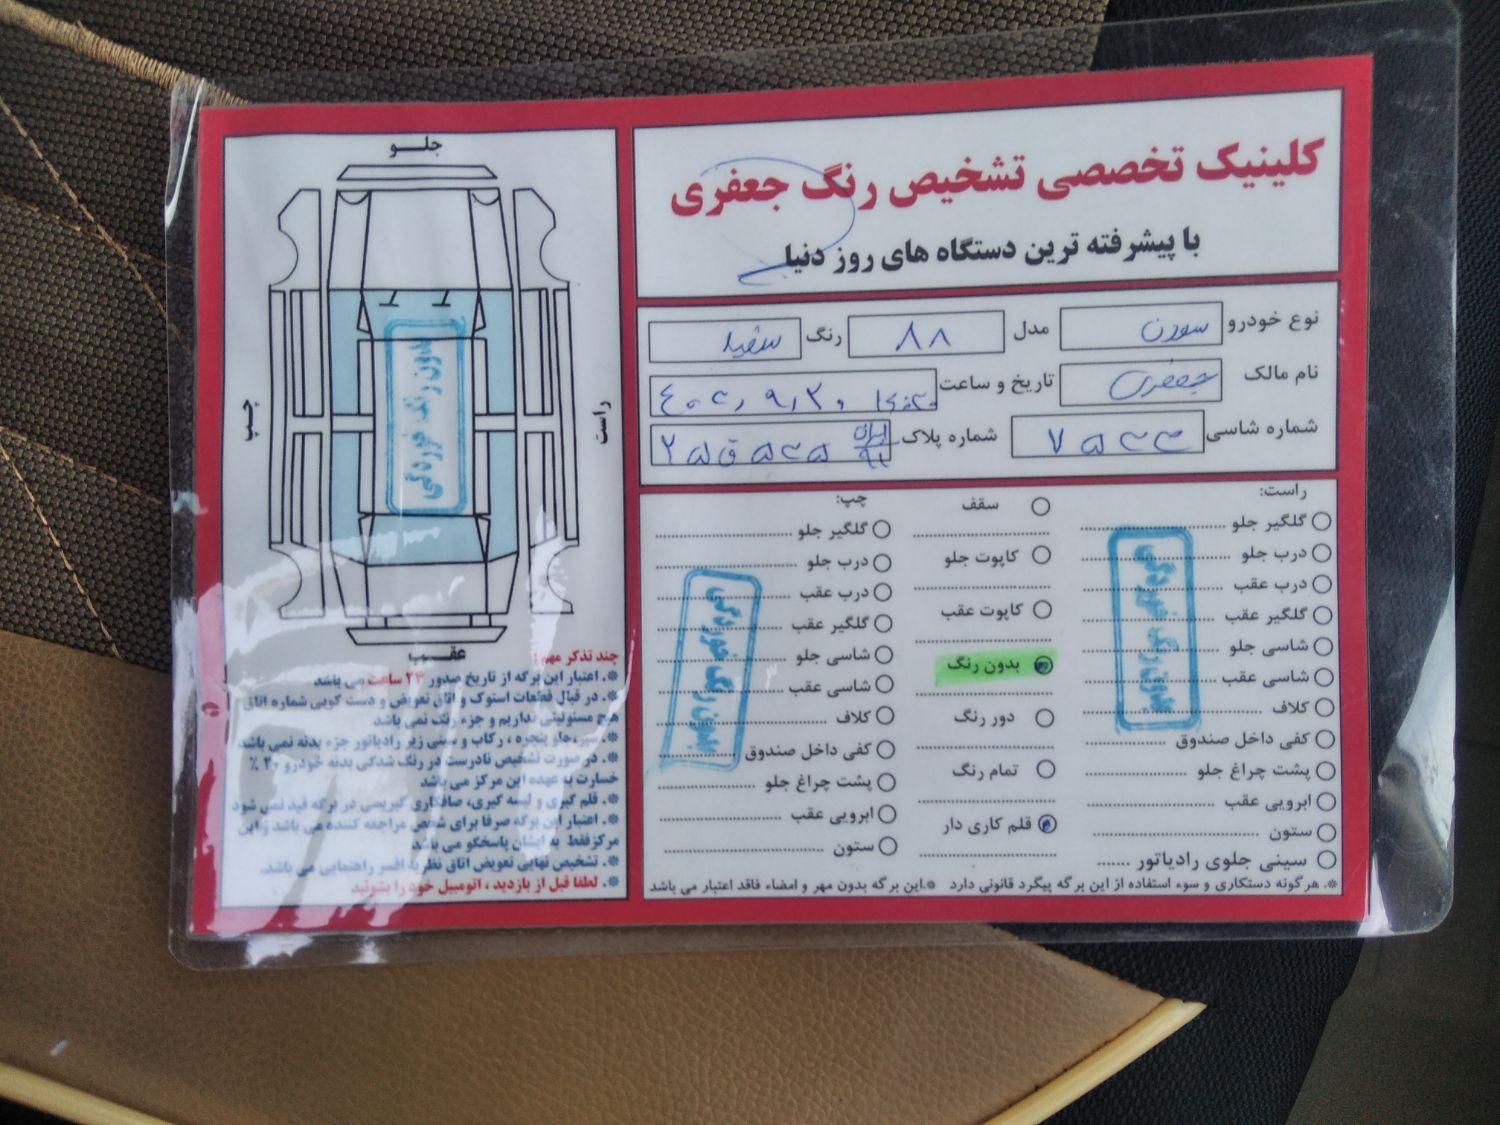 کلینیک تخصصی تشخیص رنگ جعفری
با پیشرفته ترین دستگاه های روز دنیا
نوع خودرو سورن مدل ۸۸ رنگ سفید
نام مالک جعفری تاریخ و ساعت
شماره شاسی شماره پلاک ایران
راست:
گلگیر جلو
درب جلو
درب عقب
گلگیر عقب
شاسی جلو
شاسی عقب
کلاف
کفی داخل صندوق
پشت چراغ جلو
ابرویی عقب
ستون
سینی جلوی رادیاتور
بدون رنگ خوردگی
سقف
کاپوت جلو
کاپوت عقب
بدون رنگ
دور رنگ
تمام رنگ
قلم کاری دار
چپ:
گلگیر جلو
درب جلو
درب عقب
گلگیر عقب
شاسی جلو
شاسی عقب
کلاف
کفی داخل صندوق
پشت چراغ جلو
ابرویی عقب
ستون
بدون رنگ خوردگی
*. هرگونه دستکاری و سوء استفاده از این برگه پیگرد قانونی دارد *.این برگه بدون مهر و امضاء فاقد اعتبار می باشد
جلـــو
چپ
راست
بدون رنگ خوردگی
عقـــب
چند تذکر مهم:
*. اعتبار این برگه از تاریخ صدور ۲۴ ساعت می باشد
*. در قبال قطعات استوک و اتاق تعویض و دست کوبی شماره اتاق
هیچ مسئولیتی نداریم و جزء رنگ نمی باشد
*. سپر،جلو پنجره ، رکاب و سینی زیر رادیاتور جزء بدنه نمی باشد
*. در صورت تشخیص نادرست در رنگ شدگی بدنه خودرو ۲۰ ٪
خسارت به عهده این مرکز می باشد
*. قلم گیری و لیسه گیری، صافکاری گیریسی در برگه قید نمی شود
*. اعتبار این برگه صرفا برای شخص مراجعه کننده می باشد و این
مرکز فقط به ایشان پاسخگو می باشد
*. تشخیص نهایی تعویض اتاق نظریه افسر راهنمایی می باشد.
*. لطفا قبل از بازدید ، اتومبیل خود را بشوئید